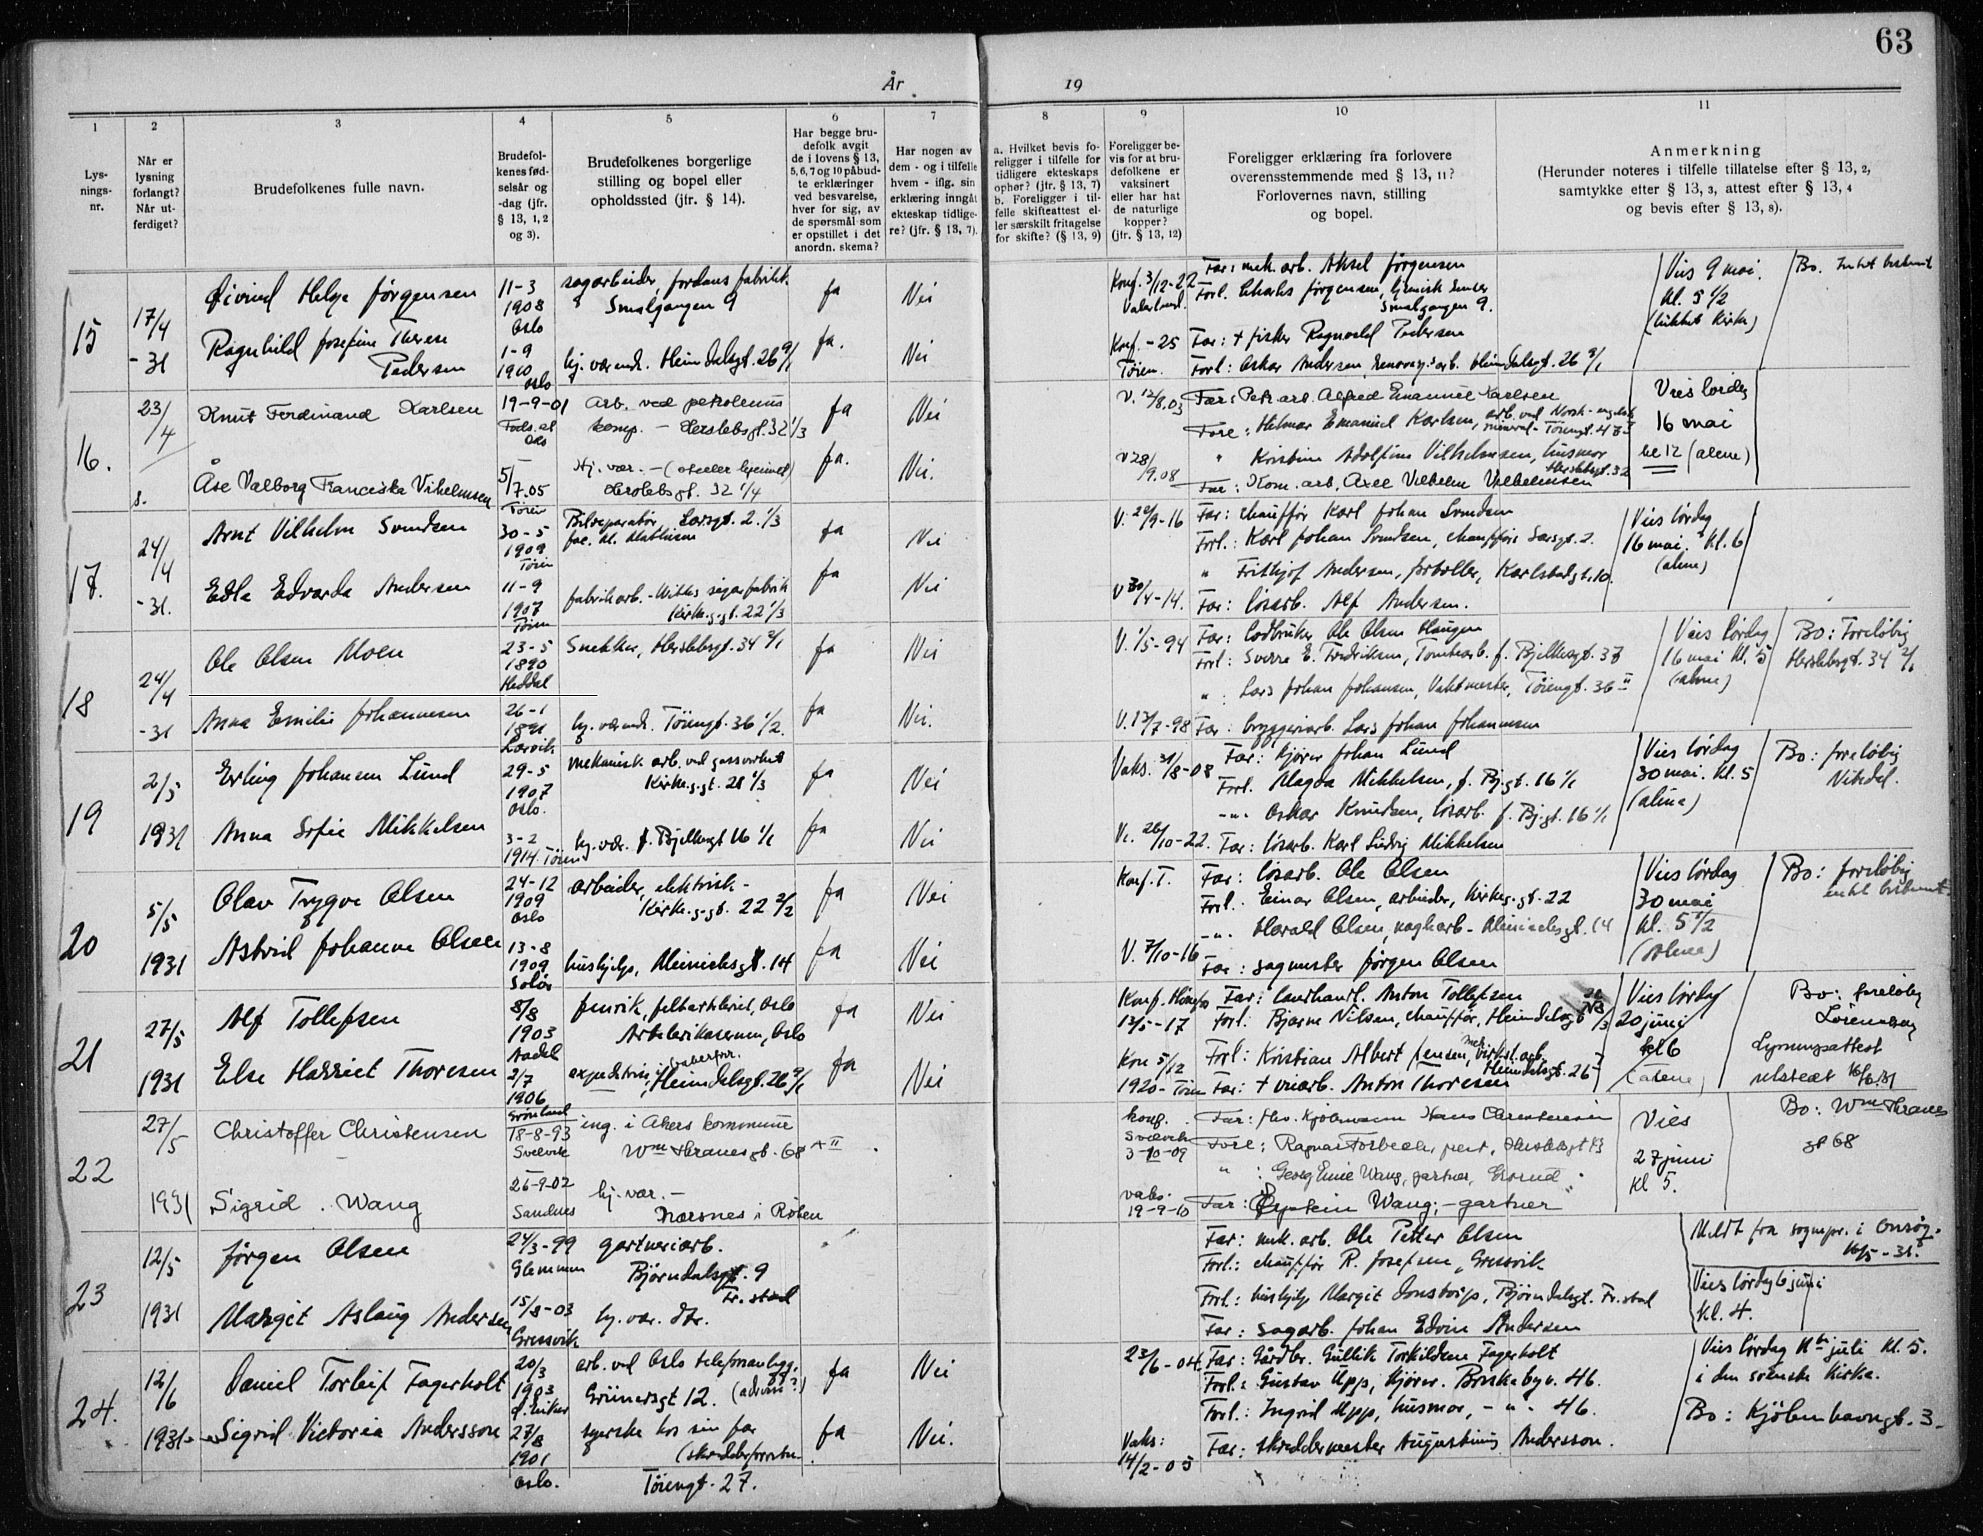 63
År
19
1
2
3
4
5
6
7
8
9
10
11
Lys-
nings-
nr.
Når er
lysning
forlangt?
Når ut-
ferdiget?
Brudefolkenes fulle navn.
Brudefol-
kenes fød-
selsår og
-dag (jfr.
§ 13, 1, 2
og 3).
Brudefolkenes borgerlige
stilling og bopel eller
opholdssted (jfr. § 14).
Har begge bru-
defolk avgit
de i lovens § 13,
5, 6, 7 og 10 påbud-
te erklæringer
ved besvarelse,
hver for sig, av
de spørsmål som
er opstillet i det
anordn. skema?
Har nogen av
dem - og i tilfelle
hvem - iflg. sin
erklæring inngåt
ekteskap tidlige-
re? (jfr. § 13, 7).
a. Hvilket bevis fo-
religger i tilfelle for
tidligere ekteskaps
ophør? (jfr. § 13, 7)
b. Foreligger i til-
felle skifteattest el-
ler særskilt fritagelse
for skifte? (§ 13, 9)
Foreligger be-
vis for at bru-
defolkene er
vaksinert
eller har hat
de naturlige
kopper?
(jfr. § 13, 12)
Foreligger erklæring fra forlovere
overensstemmende med § 13, 11?
Forlovernes navn, stilling
og bopel.
Anmerkning
(Herunder noteres i tilfelle tillatelse efter § 13, 2,
samtykke etter § 13, 3, attest efter § 13, 4
og bevis efter § 13, 8).
15
17/4
-31
Øivind Helge Jørgensen
11-3
1908
Oslo
sagarbeider, Jordans fabrikk
Smalgangen 9
ja
Nei
Konf. 3/12-22
Vaterland.
Far: mek. arb. Aksel Jørgensen
Forl. Charles Jørgensen,
Smalgangen 9.
Vies 9 mai.
kl. 5 1/2
(lukket kirke)
Bo. Intet bestemt
Ragnhild Josefine Therese
Pedersen
1-9
1910
Oslo
hj. værende. Heimdalsgt. 26
ja.
Nei
Konf. -25
Tøien.
Far: + fisker Ragnvald Pedersen
Forl: Oskar Andersen, renovasj. arb. Heimdalsgt. 26
16.
23/4
Knut Ferdinand Karlsen
19-9-01
Oslo
Arb. ved petroleums
komp. - Herslebsgt. 32 1/3
ja
Nei
V. 12/8.03
Far: Petr. arb. Alfred Emanuel Karlsen
Forl: Hilmar Emanuel Karlsen, arb. ved Norsk-engelsk
mineral - Tøiengt. 47
Vies lørdag
16 mai
kl 12 (alene)
Åse Valborg Franciska Vilhelmsen
5/7.05
Tøien
Hj. vær. -
Herslebsgt. 32 1/4
ja.
Nei.
V 28/9.08
" Kristine Adolfine Vilhelmsen, husmor
Herslebsgt. 32
Far: Kom. arb. Axel Vilhelm Vilhelmsen
17.
24/4
-31.
Arnt Vilhelm Svendsen
30-5
1909
Tøien
Bilreparatør Larsgt. 2. 1/3
ja
Nei
V. 20/9-16
Far: chauffør Karl Johan Svendsen
Forl.: Karl Johan Svendsen, chauffør Larsgt. 2.
Vies lørdag
16 mai. kl. 6
(alene)
Edla Edvarda Andersen
11-9
1907
Tøien
fabrikarb. - sigarfabrik
Kirke.g.gt. 22 1/3
ja
Nei
V 30/4-14.
" Frithjof Andersen, Karlstadgt. 10.
Far: løsarb. Alf Andersen.
18
24/4
-31
Ole Olsen Moen
23-5
1890
Heddal
Snekker, Herslebsgt. 34 2/1
ja
Nei
V. 1/5-94
Far: Ole Olsen Haugen
Forl: Sverre E. Fredriksen, Tomtearb. f. Bjelkesgt. 37
Vies lørdag
16 mai kl. 5
(alene)
Bo: Foreløbig
Herslebsgt. 34 2/1
Anna Emilie Johannesen
26-1
1891
Larvik
hj. værende. Tøiengt. 36 1/2.
ja
Nei.
V. 13/7-98
" Lars Johan Johansen, Vaktmester, Tøiengt. 36 II
Far: bryggeriarb. Lars Johan Johannesen
19
2/5
1931
Erling Johansen Lund
29-5
1907
Oslo.
mekanisk arb. ved gassverket
Kirke.g.gt. 21 1/3
ja
Nei
Vaks. 31/8-08
Far: kjører Johan Lund
Forl. Magda Mikkelsen, f. Bj.gt. 16 1/1
Vies lørdag
30 mai. kl. 5
(alene)
Bo: foreløbig
Nitedal.
Anna Sofie Mikkelsen
3-2
1914. Tøien
hj. vær. f. Bjelkesgt 16 1/1
ja
Nei
V. 26/10-22.
-"- Oskar Knudsen, løsarb. f. Bj.gt. 16 1/1
Far: løsarb. Karl Ludvig Mikkelsen
20
5/5
1931
Olav Trygve Olsen
24-12
1909
Oslo
arbeider, elektrisk -
Kirke.g.gt. 22 2/2
ja
Nei
Konf. T.
Far: løsarb. Ole Olsen
Forl. Einar Olsen, arbeider, Kirkeg.gt. 22
Vies lørdag
30 mai
kl. 5 1/2
(alene)
Bo: foreløbig
intet bestemt.
Astrid Johanne Olsen
13-8
1909
Solør
hushjelp, Meinichsgt. 14
ja
Nei
V. 7/10-16
-"- Harald Olsen, Meinichsgt. 14
Far: sagmester Jørgen Olsen
21
27/5
1931
Alf Tollefsen
8/8
1903
Aadal
fenrik, feltartileriet, Oslo
Artillerikasernen, Oslo
ja
Nei
Konf. Hønefos
13/5-17
Far: landhandl. Anton Tollefsen
Forl. Bjarne Nilsen, chauffør, Heimdalsgt
Vies lørdag
20 juni
kl 6
(alene)
Bo: foreløbig
Lørenskog
Lysningsattest
utstedt 16/6.31
Else Harriet Thoresen
2/7
1906
Grønland
Heimdalsgt. 26
ja
Nei
Kon 5/12
1920 - Tøien
Forl: Kristian Albert Jensen, mek. verkst. arb.
Heimdalsgt. 26
Far: + Anton Thoresen
22
27/5
1931
Christoffer Christensen
18-8-93
Svelvik
ing. i Akers kommune
Wm Thranesgt. 68 II
konf.
Svelvik
3-10-09
Far: Kjøbmann Hans Christensen
Forl: Ragnar
Vies
27 juni
kl 5.
Bo: Wm Thranes
gt 68
Sigrid Wang
26-9-02
Sandnes
hj. vær. -
Nærsnes i Røken
vaks.
19-9-10
" : Georg Emil Wang, gartner, Grorud
Far: Wang, - gartner
23
12/5
1931
Jørgen Olsen
24/3-99
Glemmen
gartneriarb.
Bjørndalsgt. 9
Fr. stad
Far: mek. arb. Ole Petter Olsen
Forl.: chauffør R. Josefsen, Gressvik
Meldt fra sognepr. i Onsøy.
16/5-31.
Margit Aslaug Andersen
15/8-03
Gressvik
hj. vær. dtr.
Forl.: hushjelp Margit Bjørndalsgt. Fr. stad
Far: sagarb. Johan Edvin Andersen
Vies lørdag 6 juni
kl. 4.
24.
12/6
1931
Daniel Torleif Fagerholt
20/3
1903
Ø. Eiker
arb. ved Oslo telefonanlegg.
Grünersgt 12.
ja
Nei
23/6-04.
Far: Gårdbr. Gullik Torkildsen Fagerholt
Forl.: Gustav Upp, kjører. Briskebyv. 46.
Vies lørdag 11te juli kl. 5.
i den svenske kirke.
Sigrid Victoria Andersson
27/8
1901
Oslo.
syerske hos sin far
Tøiengt. 27.
ja
Nei.
Vaks:
14/2-05
Forl.: Ingrid Upp, husmor, - " - 46.
Far: skreddermester Augustinus Andersson.
Bo: Kjøbenhavngt. 3.